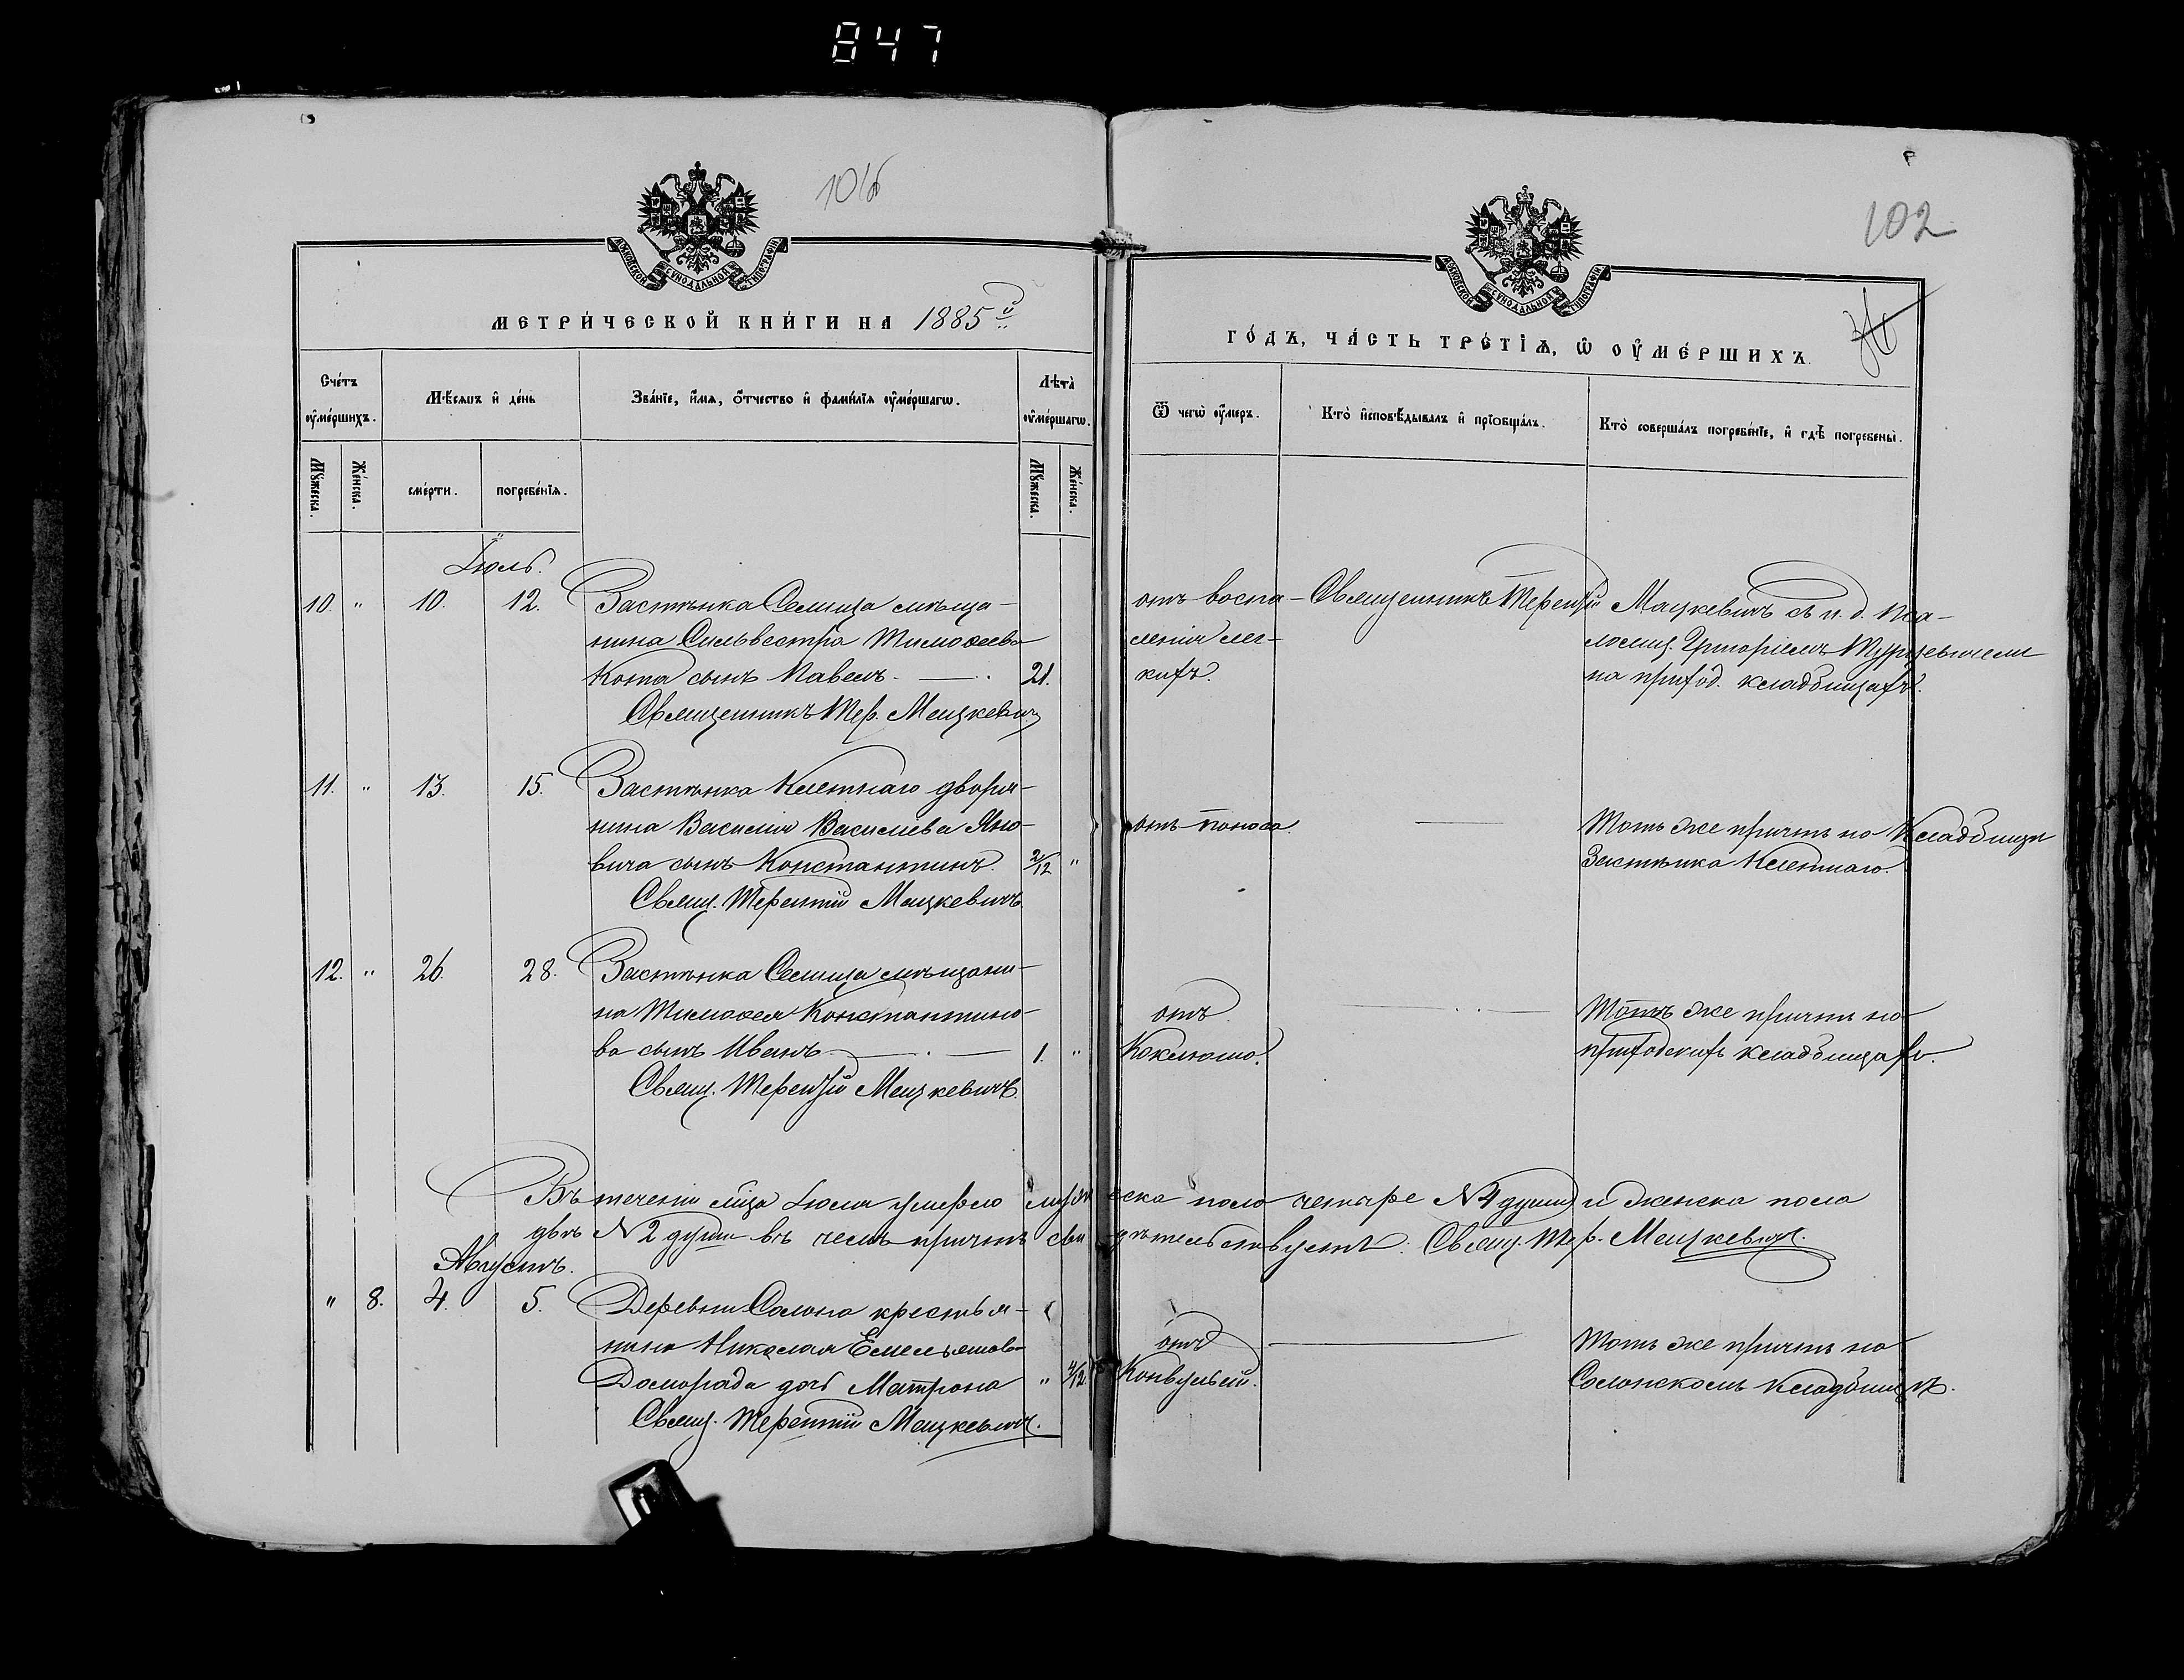 847
101б
102
МЕТРИ́ЧЕСКОЙ КНИ́ГИ НА 1885й
ГО́ДЪ, ЧА́СТЬ ТРЕ́ТІѦ, Ѡ ОУ҆МЕ́РШИХЪ.
Сче́тъ оу҆ме́ршихъ.
Мꙋ́жеска.
Же́нска.
Мѣ́сяцъ и҆ де́нь
сме́рти.
погребе́нїѧ.
Зва́нїе, и҆́мѧ, ѻ҆́тчество и҆ фами́лїѧ оу҆ме́ршагѡ.
Лѣ́та оу҆ме́ршагѡ.
Мꙋ́жеска.
Же́нска.
Ѿ чегѡ̀ оу҆́меръ.
Кто̀ и҆сповѣ́дывалъ и҆ прїѻбща́лъ.
Кто̀ соверша́лъ погребе́нїе, и҆ гдѣ̀ погребены̀.
Іюль.
10. " 10. 12. Застѣнка Селища мѣща-
нина Сильвестра Тимоѳеева
Кота сынъ Павелъ. 21.
Священникъ Тер. Мацкевич
отъ воспа-
ленія лег-
кихъ.
Священникъ Терентій Мацкевичъ съ и. д. Пса-
ломщ. Григоріемъ Турцевичемъ
на приход. кладбищахъ.
11. " 13. 15. Застѣнка Клетнаго дворя-
нина Василія Васильева Яно-
вича сынъ Константинъ. 2/12 "
Свящ. Терентій Мацкевичъ
отъ поноса.
Тотъ же причтъ на Кладбищѣ
Застѣнка Клетнаго.
12. " 26. 28. Застѣнка Селища мѣщани-
на Тимоѳея Константино-
ва сынъ Иванъ 1. "
Свящ. Терентій Мацкевичъ.
отъ
Коклюша.
Тотъ же причтъ на
приходскихъ кладбищахъ.
Въ теченіи мѣца Іюля умерло мужеска пола четыре №4 души и женска пола
двѣ №2 души въ чемъ причтъ свидѣтельствуетъ: Свящ. Тер. Мацкевич.
Августъ.
" 8. 4. 5. Деревни Солона крестья-
нина Николая Емельянова
Доморада дочь Матрона " 4/12.
Свящ. Терентій Мацкевич.
отъ
Конвульсій.
Тотъ же причтъ на
Солонскомъ кладбищѣ.